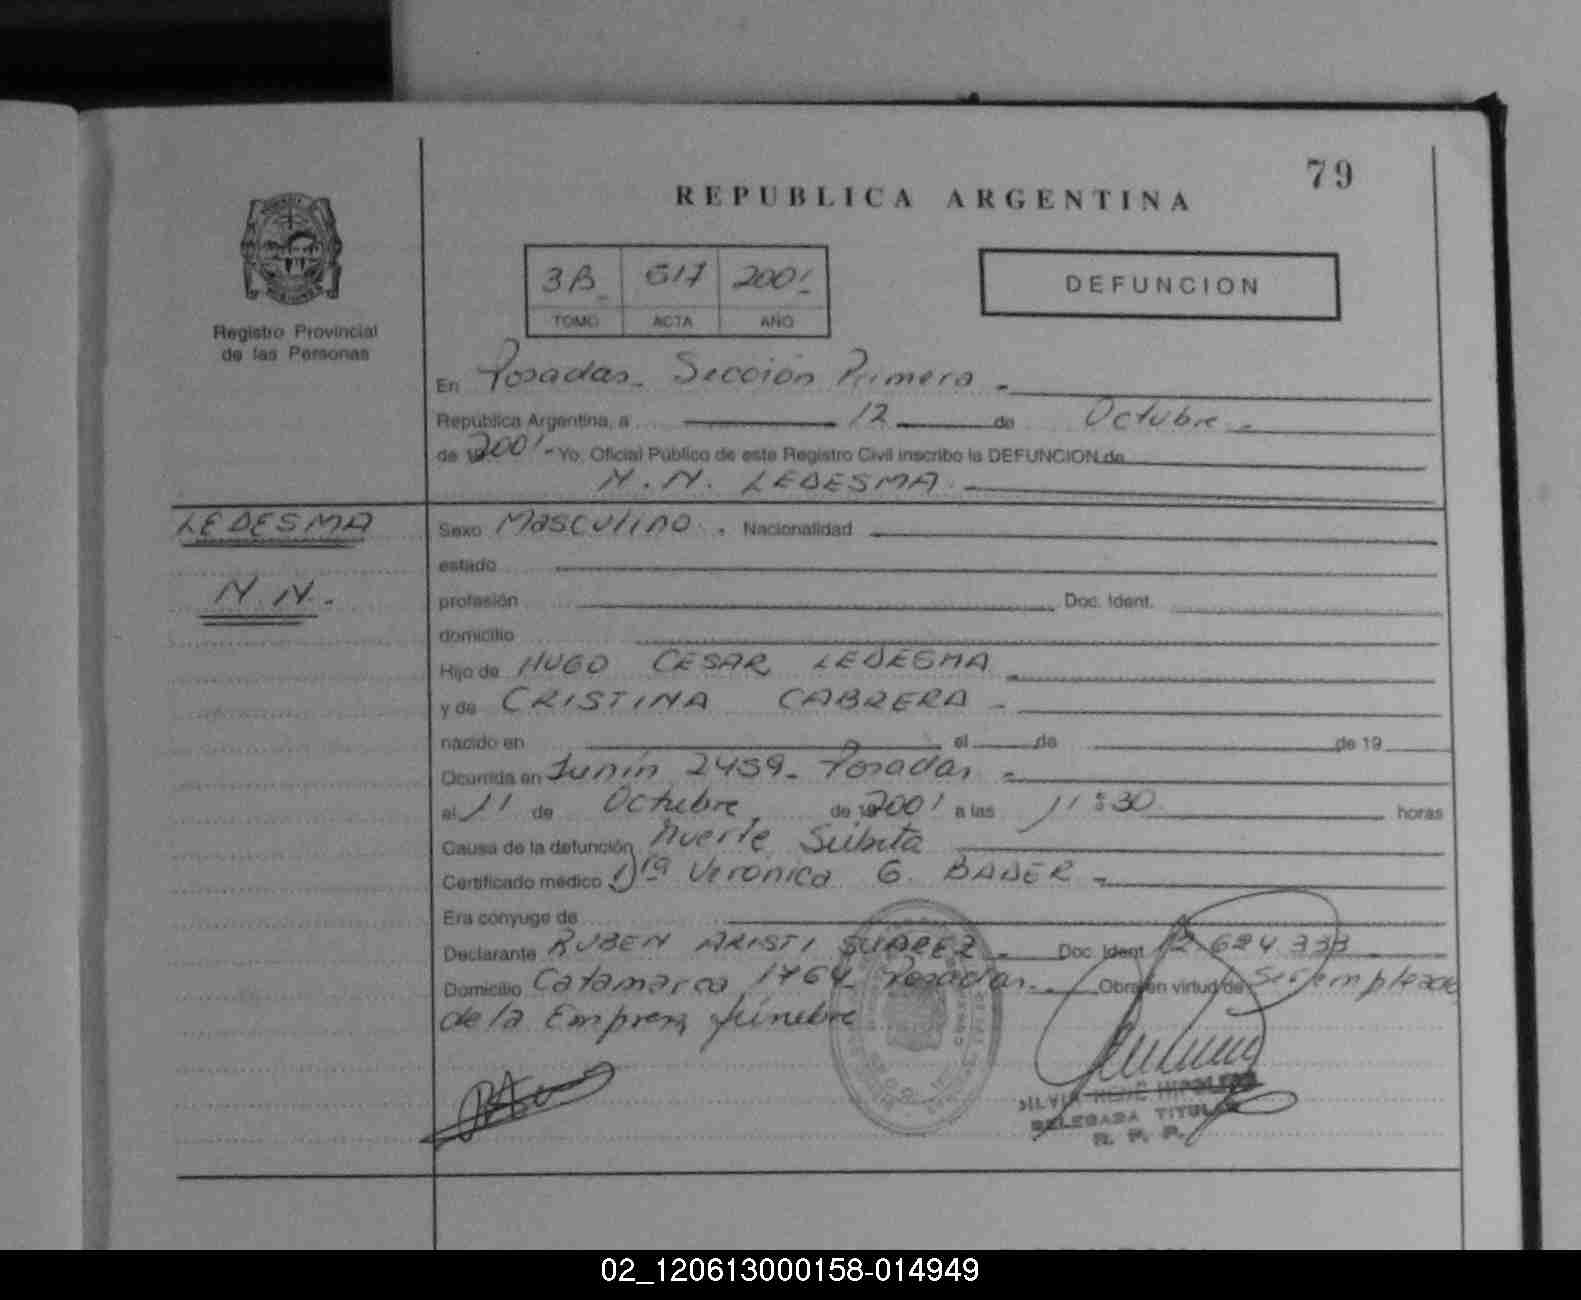 79
REPUBLICA ARGENTINA
Registro Provincial
de las Personas
3B 617 2001
TOMO ACTA AÑO
DEFUNCION
En Posadas - Sección Primera -
República Argentina, a 12 de Octubre -
de 2001 - Yo, Oficial Público de este Registro Civil inscribo la DEFUNCION de
N. N. LEDESMA
LEDESMA
N. N. -
Sexo Masculino . Nacionalidad
estado
profesión Doc. Ident.
domicilio
Hijo de HUGO CESAR LEDESMA
y de CRISTINA CABRERA -
nacido en el de de 19
Ocurrida en Junín 2459 - Posadas -
el 11 de Octubre de 2001 a las 11:30 horas
Causa de la defunción Muerte Súbita
Certificado médico Dra Veronica G. BADER -
Era cónyuge de
Declarante RUBEN ARISTI SUAREZ - Doc. Ident 12.624.333
Domicilio Catamarca 1764 - Posadas - Obra en virtud de Ser empleado
de la Empresa fúnebre
DELEGADA TITULAR
R. P. P.
02_120613000158-014949